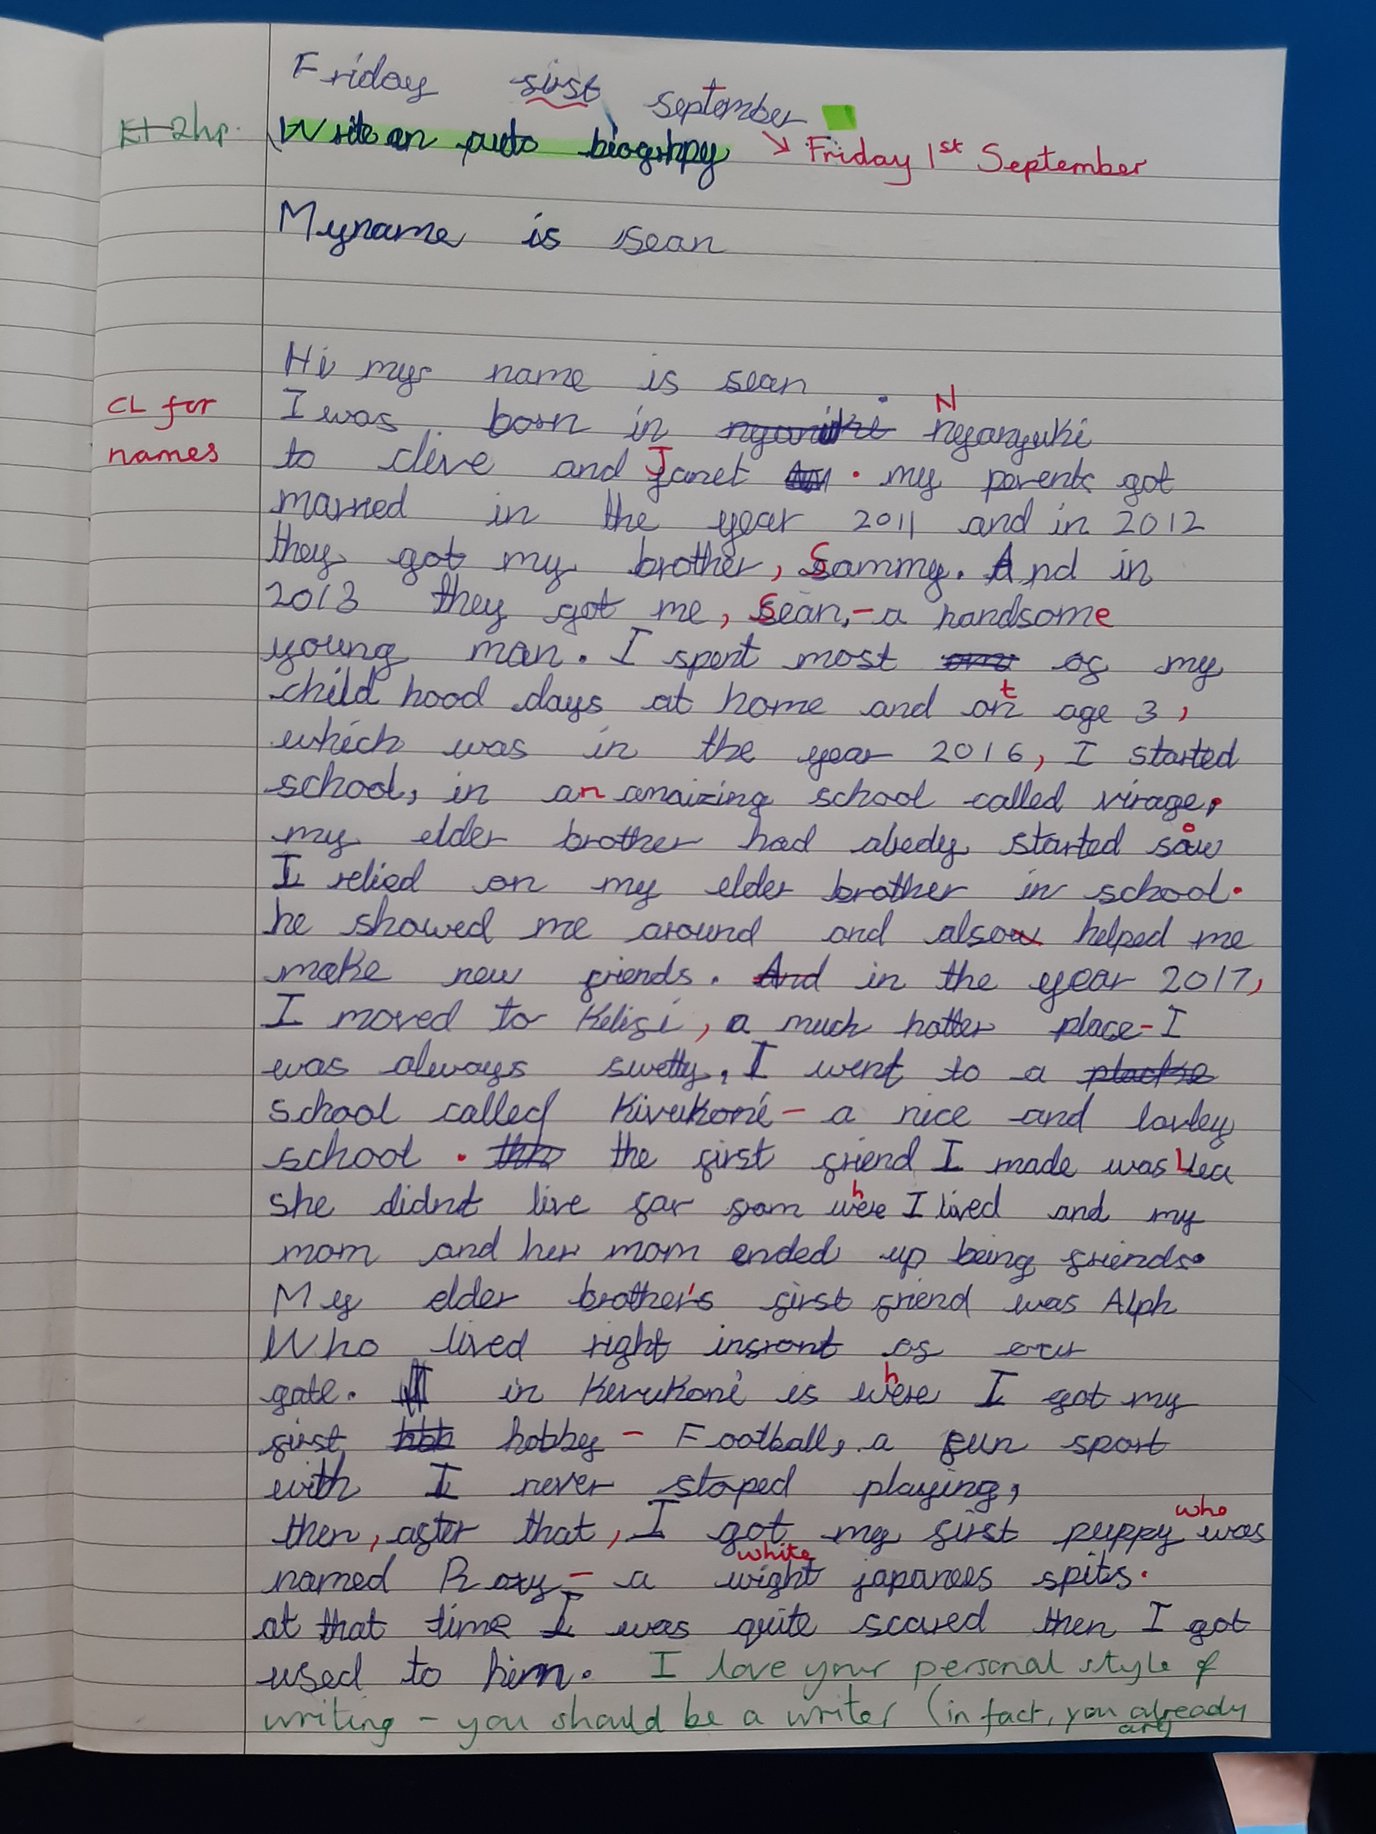 Friday sirst September
Et 2hp.
Write an auto biogrhpy → Friday 1st September
My name is sean
Hi my name is sean .
CL for names
I was born in Nyanyuki
to clive and Janet . my parents got
married in the year 2011 and in 2012
they got my brother, Sammy. And in
2013 they got me, Sean, - a handsome
young man. I spent most of my
child hood days at home and at age 3,
which was in the year 2016, I started
school, in an amaizing school called virage.
my elder brother had aledy started so
I relied on my elder brother in school.
he showed me around and also helped me
make new friends. And in the year 2017,
I moved to Kelifi, a much hotter place - I
was always swetty, I went to a
school called Kivukoni - a nice and lovley
school . the first friend I made was Lea
she didnt live far from where I lived and my
mom and her mom ended up being friends.
My elder brother's first friend was Alph
Who lived right infront of our
gate. in Kevukoni is where I got my
first hobby - Football, a fun sport
with I never stoped playing,
then, after that, I got my first puppy who was
named Roxy - a wight white japanees spits.
at that time I was quite scared then I got
used to him. I love your personal style of
writing - you should be a writer (in fact, you already
are)